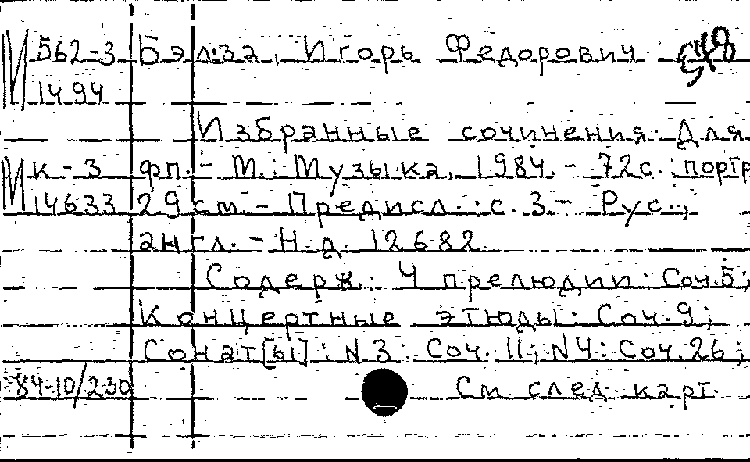 М 562-3 Бэлза, Игорь Федорович
1494
Избранные сочинения: Для
М к-3 фп. - М.: Музыка, 1984. - 72с.: портр
14633 29 см. - Предисл.: с. 3. - Рус.,
англ. - Н.д. 12682
Содерж.: 4 прелюдии: Соч.5;
Концертные этюды: Соч.9;
Сонат[ы]: N3: Соч. 11; N4: Соч.26;
84-10/230 См след карт